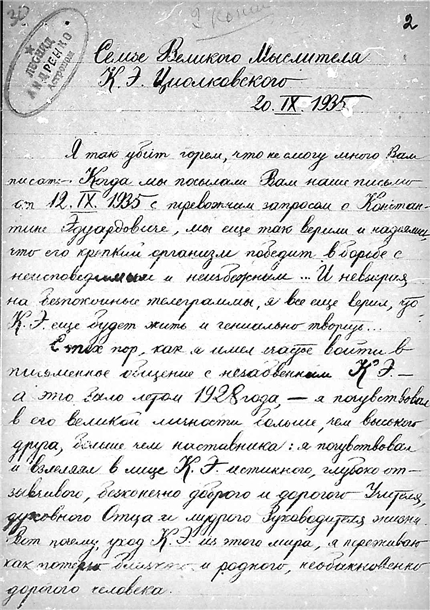 2
ЛЕОНИД
АНДРЕНКО
Астроном
Семье Великого Мыслителя
К. Э. Циолковского
20 IX 1935
Я так убит горем, что не смогу много Вам
писать. Когда мы посылали Вам наше письмо
от 12. IX. 1935 с тревожным запросом о Констан-
тине Эдуардовиче, мы еще так верили и надеялись,
что его крепкий организм победит в борьбе с
и неизбежным ... И невзирая
на безпокойные телеграммы, я все еще верил, что
К. Э. еще будет жить и гениально творить...
С тех пор, как я имел счастье войти в
письменное общение с незабвенным К. Э. —
а это было летом 1928 года — я почувствовал
в его великой личности больше, чем высокого
друга, больше чем наставника: я почувствовал
и взлелеял в лице К. Э. истинного, глубоко от-
зывчивого, безконечно доброго и дорогого Учителя,
духовного Отца и мудрого Руководителя жизни.
Вот почему, уход К. Э. из этого мира, я переживаю
как потерю близкого и родного, необыкновенно
дорогого человека.